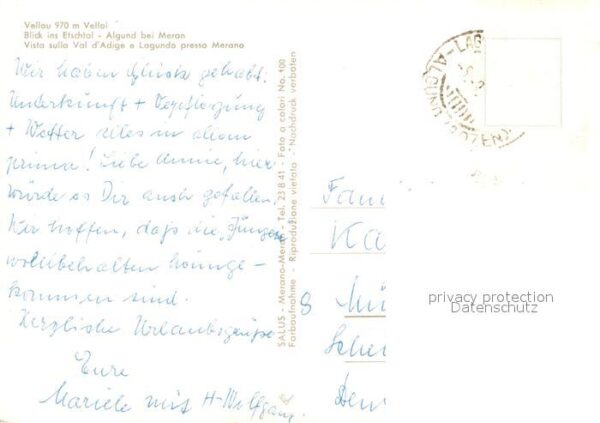 Vellau 970 m Velloi
Blick ins Etschtal - Algund bei Meran
Vista sulla Val d'Adige e Lagundo presso Merano
Wir haben Glück gehabt:
Unterkunft + Verpflegung
+ Wetter alles in allem
prima! Liebe Anne, hier
würde es Dir auch gefallen.
Wir hoffen, daß die "Jungens"
wohlbehalten heimge-
kommen sind.
Herzliche Urlaubsgrüße
Eure
Mariele mit H-Wolfgang
SALUS - Merano-Meran - Tel. 23 8 41 - Foto a colori No. 100
Farbaufnahme - Riproduzione vietata - Nachdruck verboten
LAG
ALGUND (BOZEN)
Fam
Ka
8 Mü
privacy protection
Datenschutz